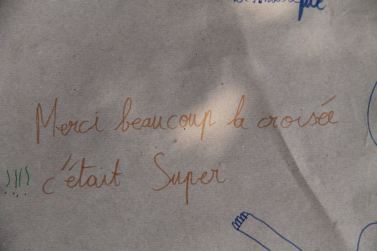 Merci beaucoup la croisée
!!!! c'était Super